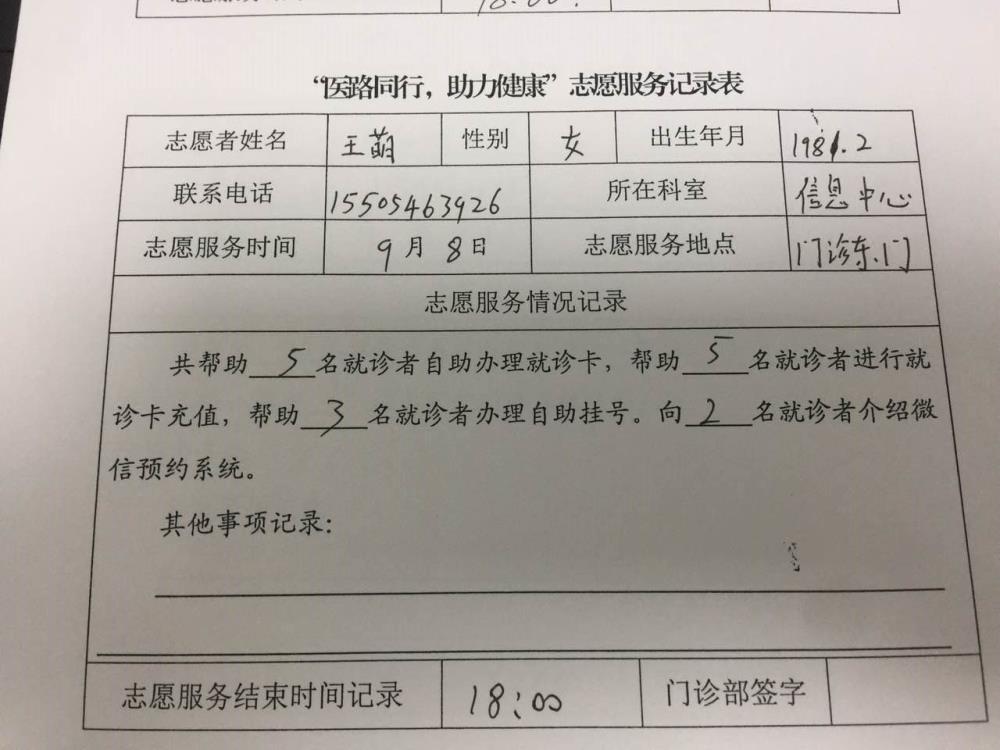 18:00.
“医路同行，助力健康”志愿服务记录表
志愿者姓名 王萌 性别 女 出生年月 1981.2
联系电话 15505463926 所在科室 信息中心
志愿服务时间 9月8日 志愿服务地点 门诊东门
志愿服务情况记录
共帮助 5 名就诊者自助办理就诊卡，帮助 5 名就诊者进行就
诊卡充值，帮助 3 名就诊者办理自助挂号。向 2 名就诊者介绍微
信预约系统。
其他事项记录：
志愿服务结束时间记录 18:00 门诊部签字